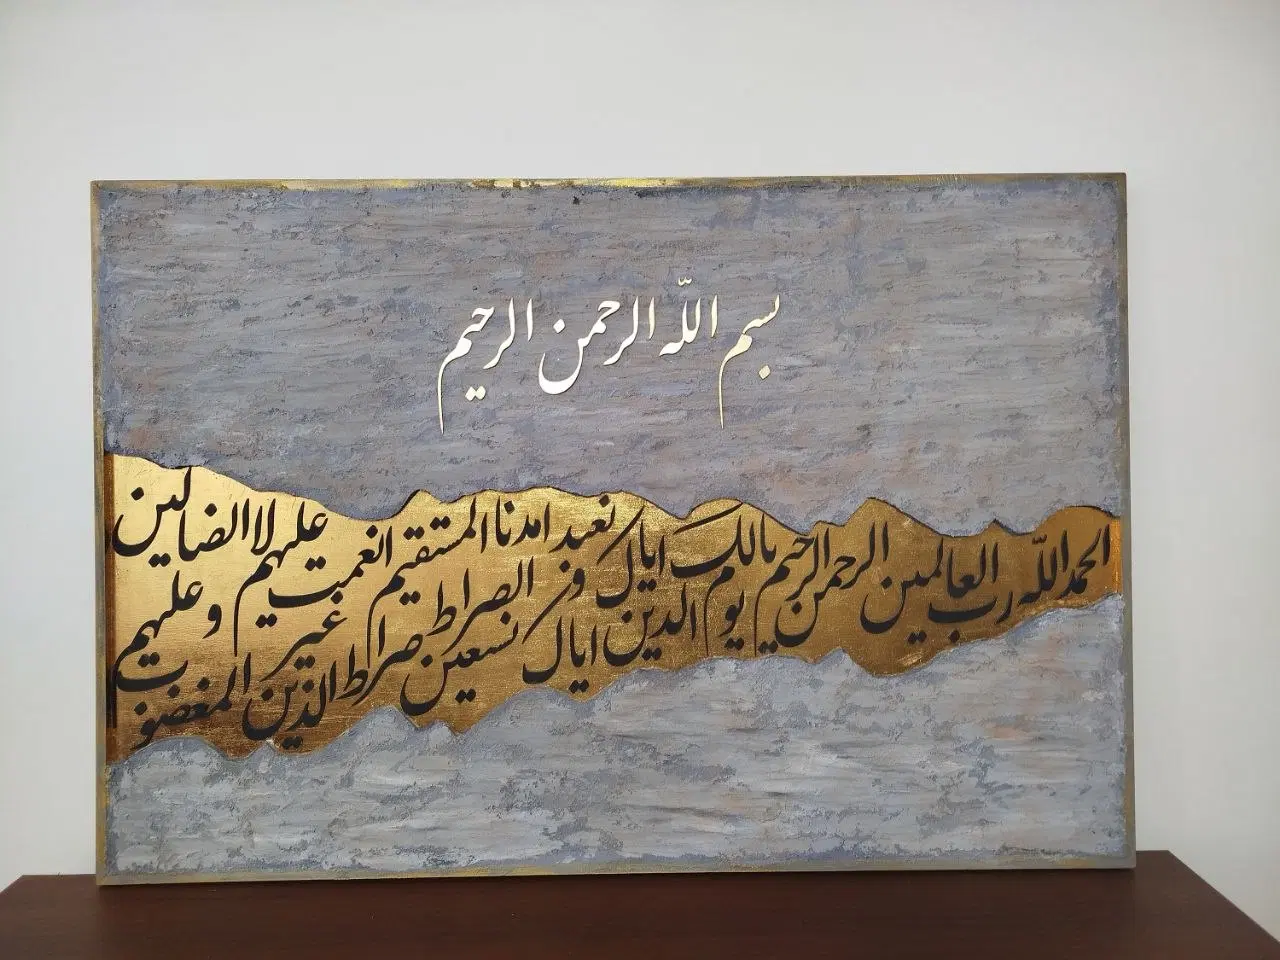 بسم اللّه الرحمن الرحيم
الحمد اللّه رب العالمين الرحمن الرحيم مالك يوم الدين اياك نعبد و اياك نستعين اهدنا الصراط المستقيم صراط الذين انعمت عليهم غير المغضوب عليهم و لا الضالين